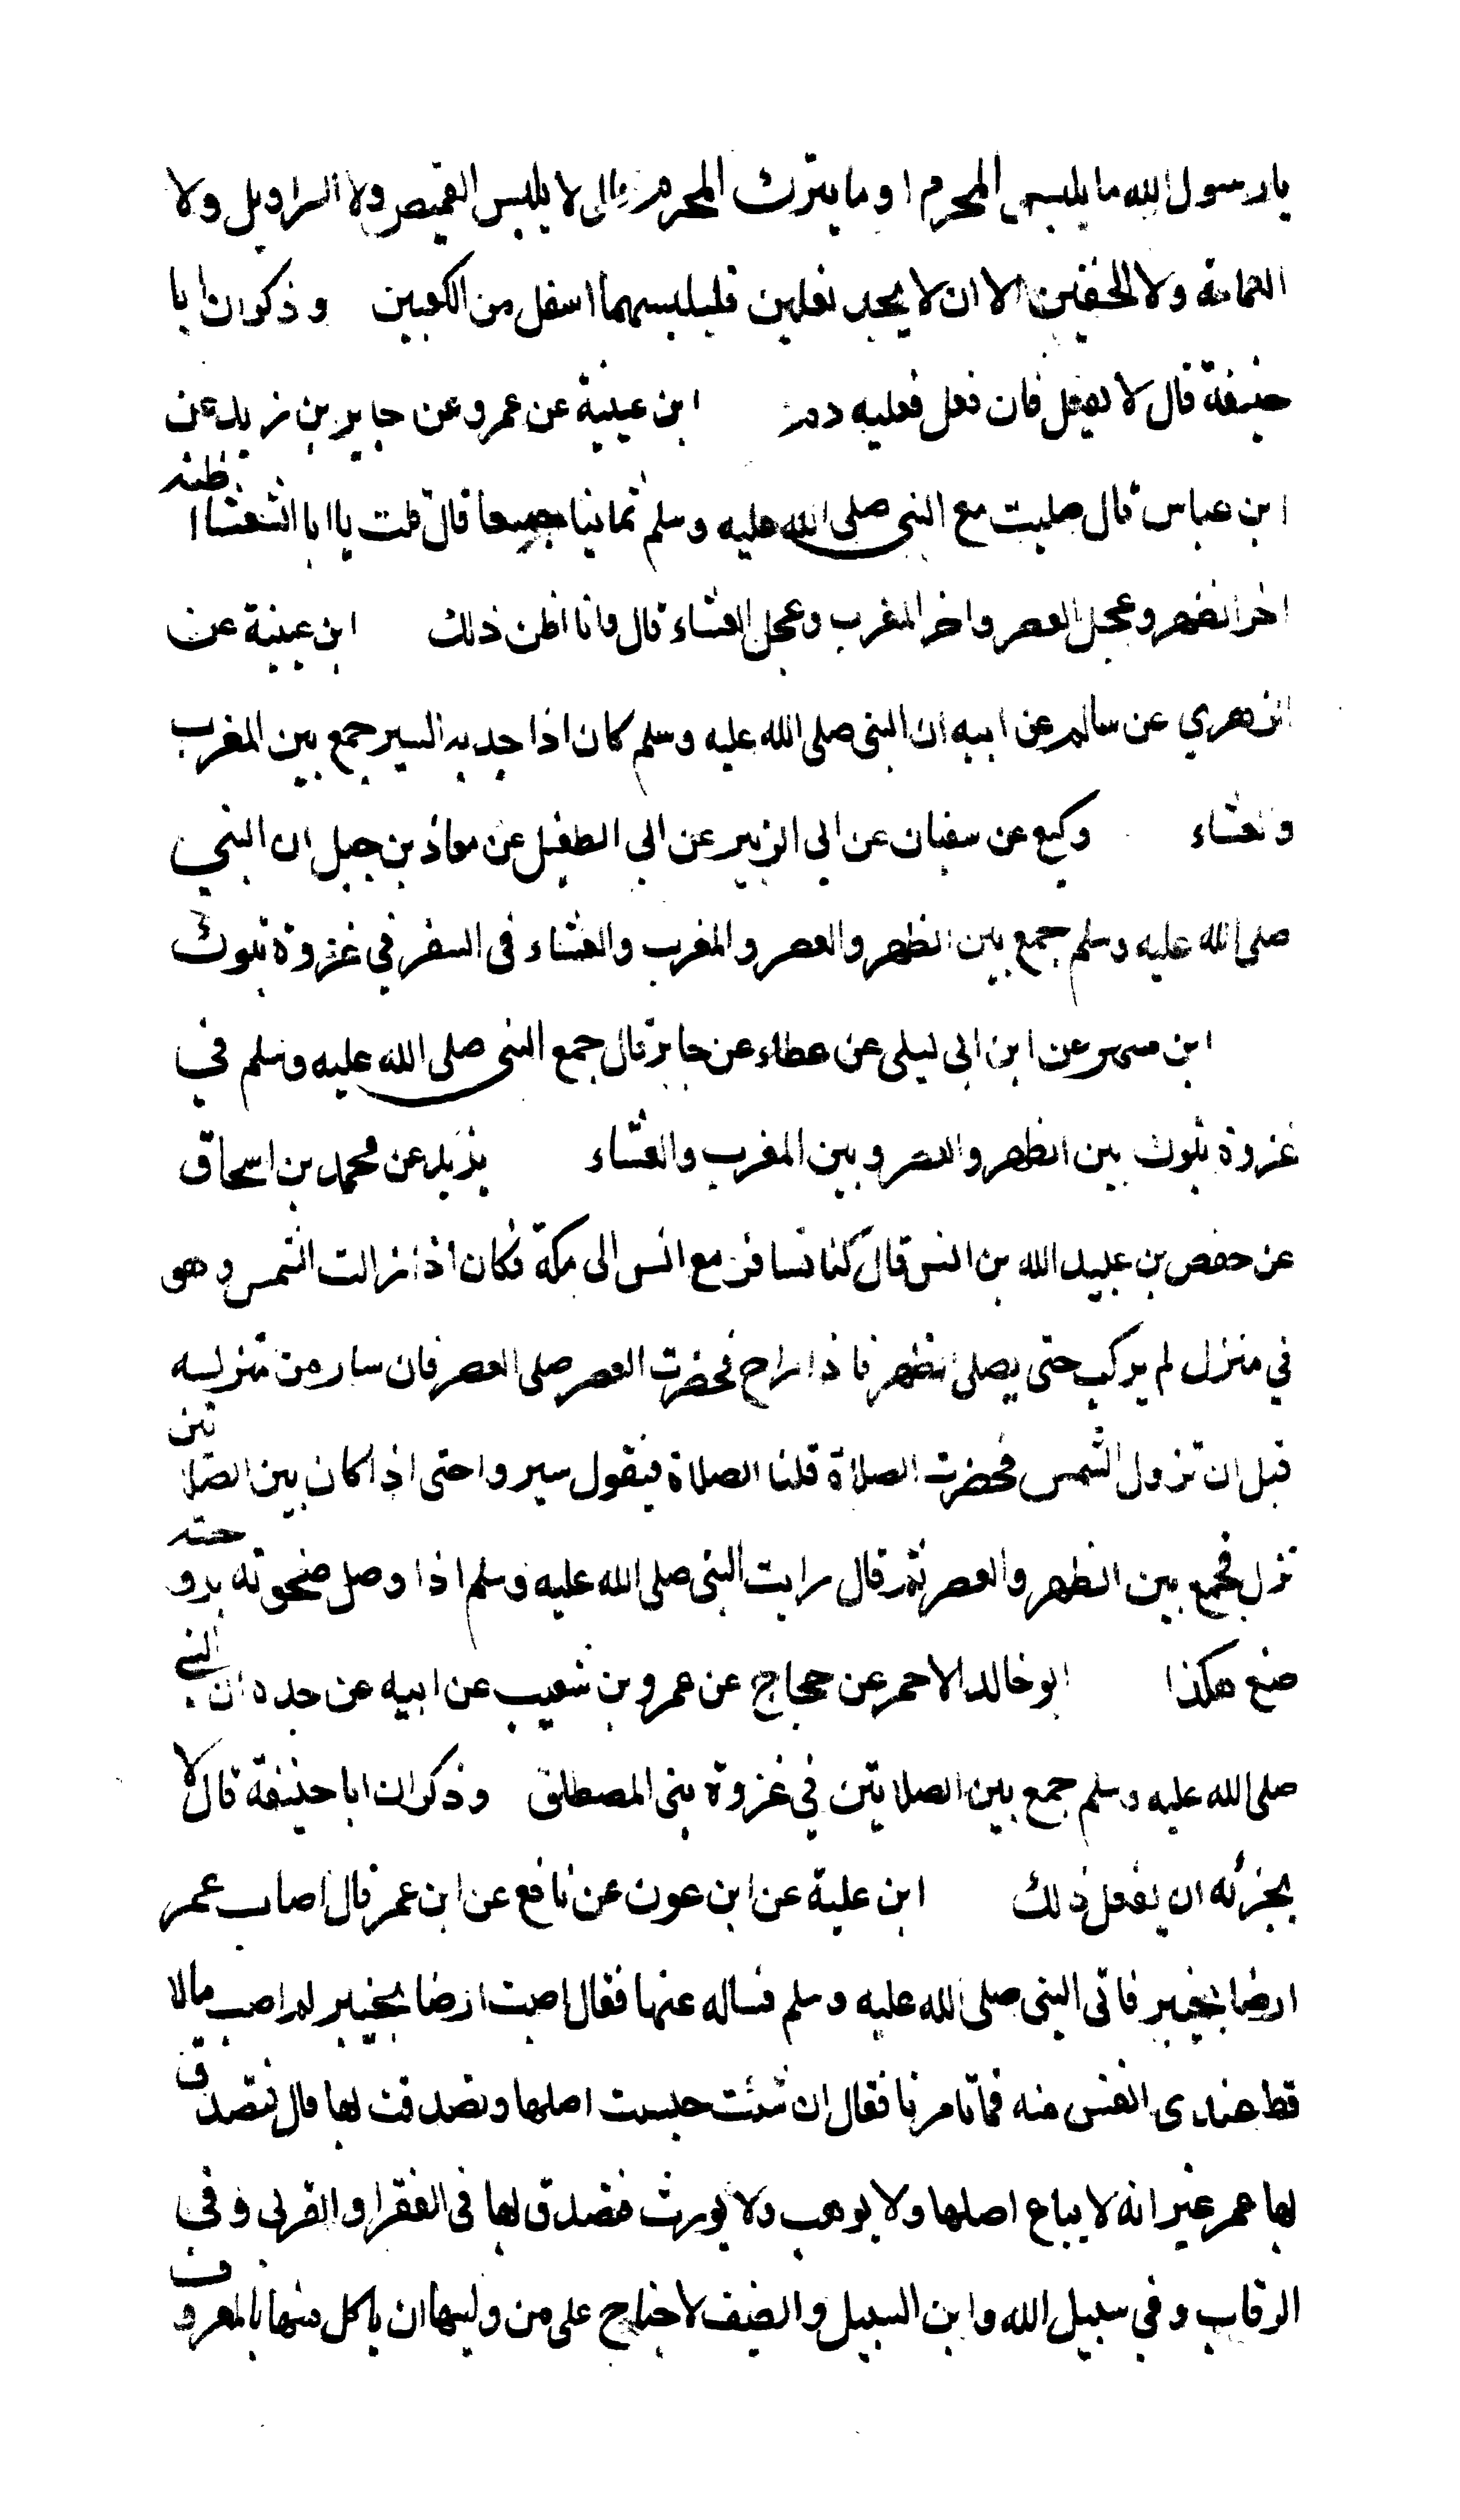 يارسول الله ما يلبس المحرم او ما يترك المحرم قال لا يلبس القميص ولا السراويل ولا
العمامة ولا الخفين الا ان لا يجد نعلين فليلبسهما اسفل من الكعبين وذكر ان ابا
حنيفة قال لا يفعل فان فعل فعليه دم ابن عيينة عن عمرو عن جابر بن زيد عن
ابن عباس قال صليت مع النبى صلى الله عليه وسلم ثمانيا جميعا قال قلت يا ابا الشعثا اظنه
اخر الظهر وعجل العصر واخر المغرب وعجل العشاء قال وانا اظن ذلك ابن عيينة عن
الزهري عن سالم عن ابيه ان النبى صلى الله عليه وسلم كان اذا جد به السير جمع بين المغرب
والعشاء وكيع عن سفيان عن ابى الزبير عن ابي الطفيل عن معاذ بن جبل ان النبي
صلى الله عليه وسلم جمع بين الظهر والعصر والمغرب والعشاء فى السفر في غزوة تبوك
ابن مسهر عن ابن ابى ليلى عن عطاء عن جابر قال جمع النبى صلى الله عليه وسلم في
غزوة تبوك بين الظهر والعصر وبين المغرب والعشاء يزيد عن محمد بن اسحاق
عن حفص بن عبيد الله بن انس قال كنا نسافر مع انس الى مكة فكان اذا زالت الشمس وهو
في منزل لم يركب حتى يصلى الظهر فاذا راح فحضرت العصر صلى العصر فان سار من منزله
قبل ان تزول الشمس فحضرت الصلاة قلنا الصلاة فيقول سيروا حتى اذا كان بين الصلاتين
نزل فجمع بين الظهر والعصر ثم قال رايت النبى صلى الله عليه وسلم اذا وصل ضحوته بروحته
صنع هكذا ابو خالد الاحمر عن حجاج عن عمرو بن شعيب عن ابيه عن جده ان النبي
صلى الله عليه وسلم جمع بين الصلاتين في غزوة بنى المصطلق وذكر ان ابا حنيفة قال لا
يجزئه ان يفعل ذلك ابن علية عن ابن عون عن نافع عن ابن عمر قال اصاب عمر
ارضا بخيبر فاتى النبى صلى الله عليه وسلم فساله عنها فقال اصبت ارضا بخيبر لم اصب مالا
قط عندى انفس منه فما تامرنا فقال ان شئت حبست اصلها وتصدقت بها قال فتصدق
بها عمر غير انه لا يباع اصلها ولا يوهب ولا يورث فتصدق بها فى الفقرا والقربى وفي
الرقاب وفي سبيل الله وابن السبيل والضيف لا جناح على من وليها ان ياكل منها بالمعروف